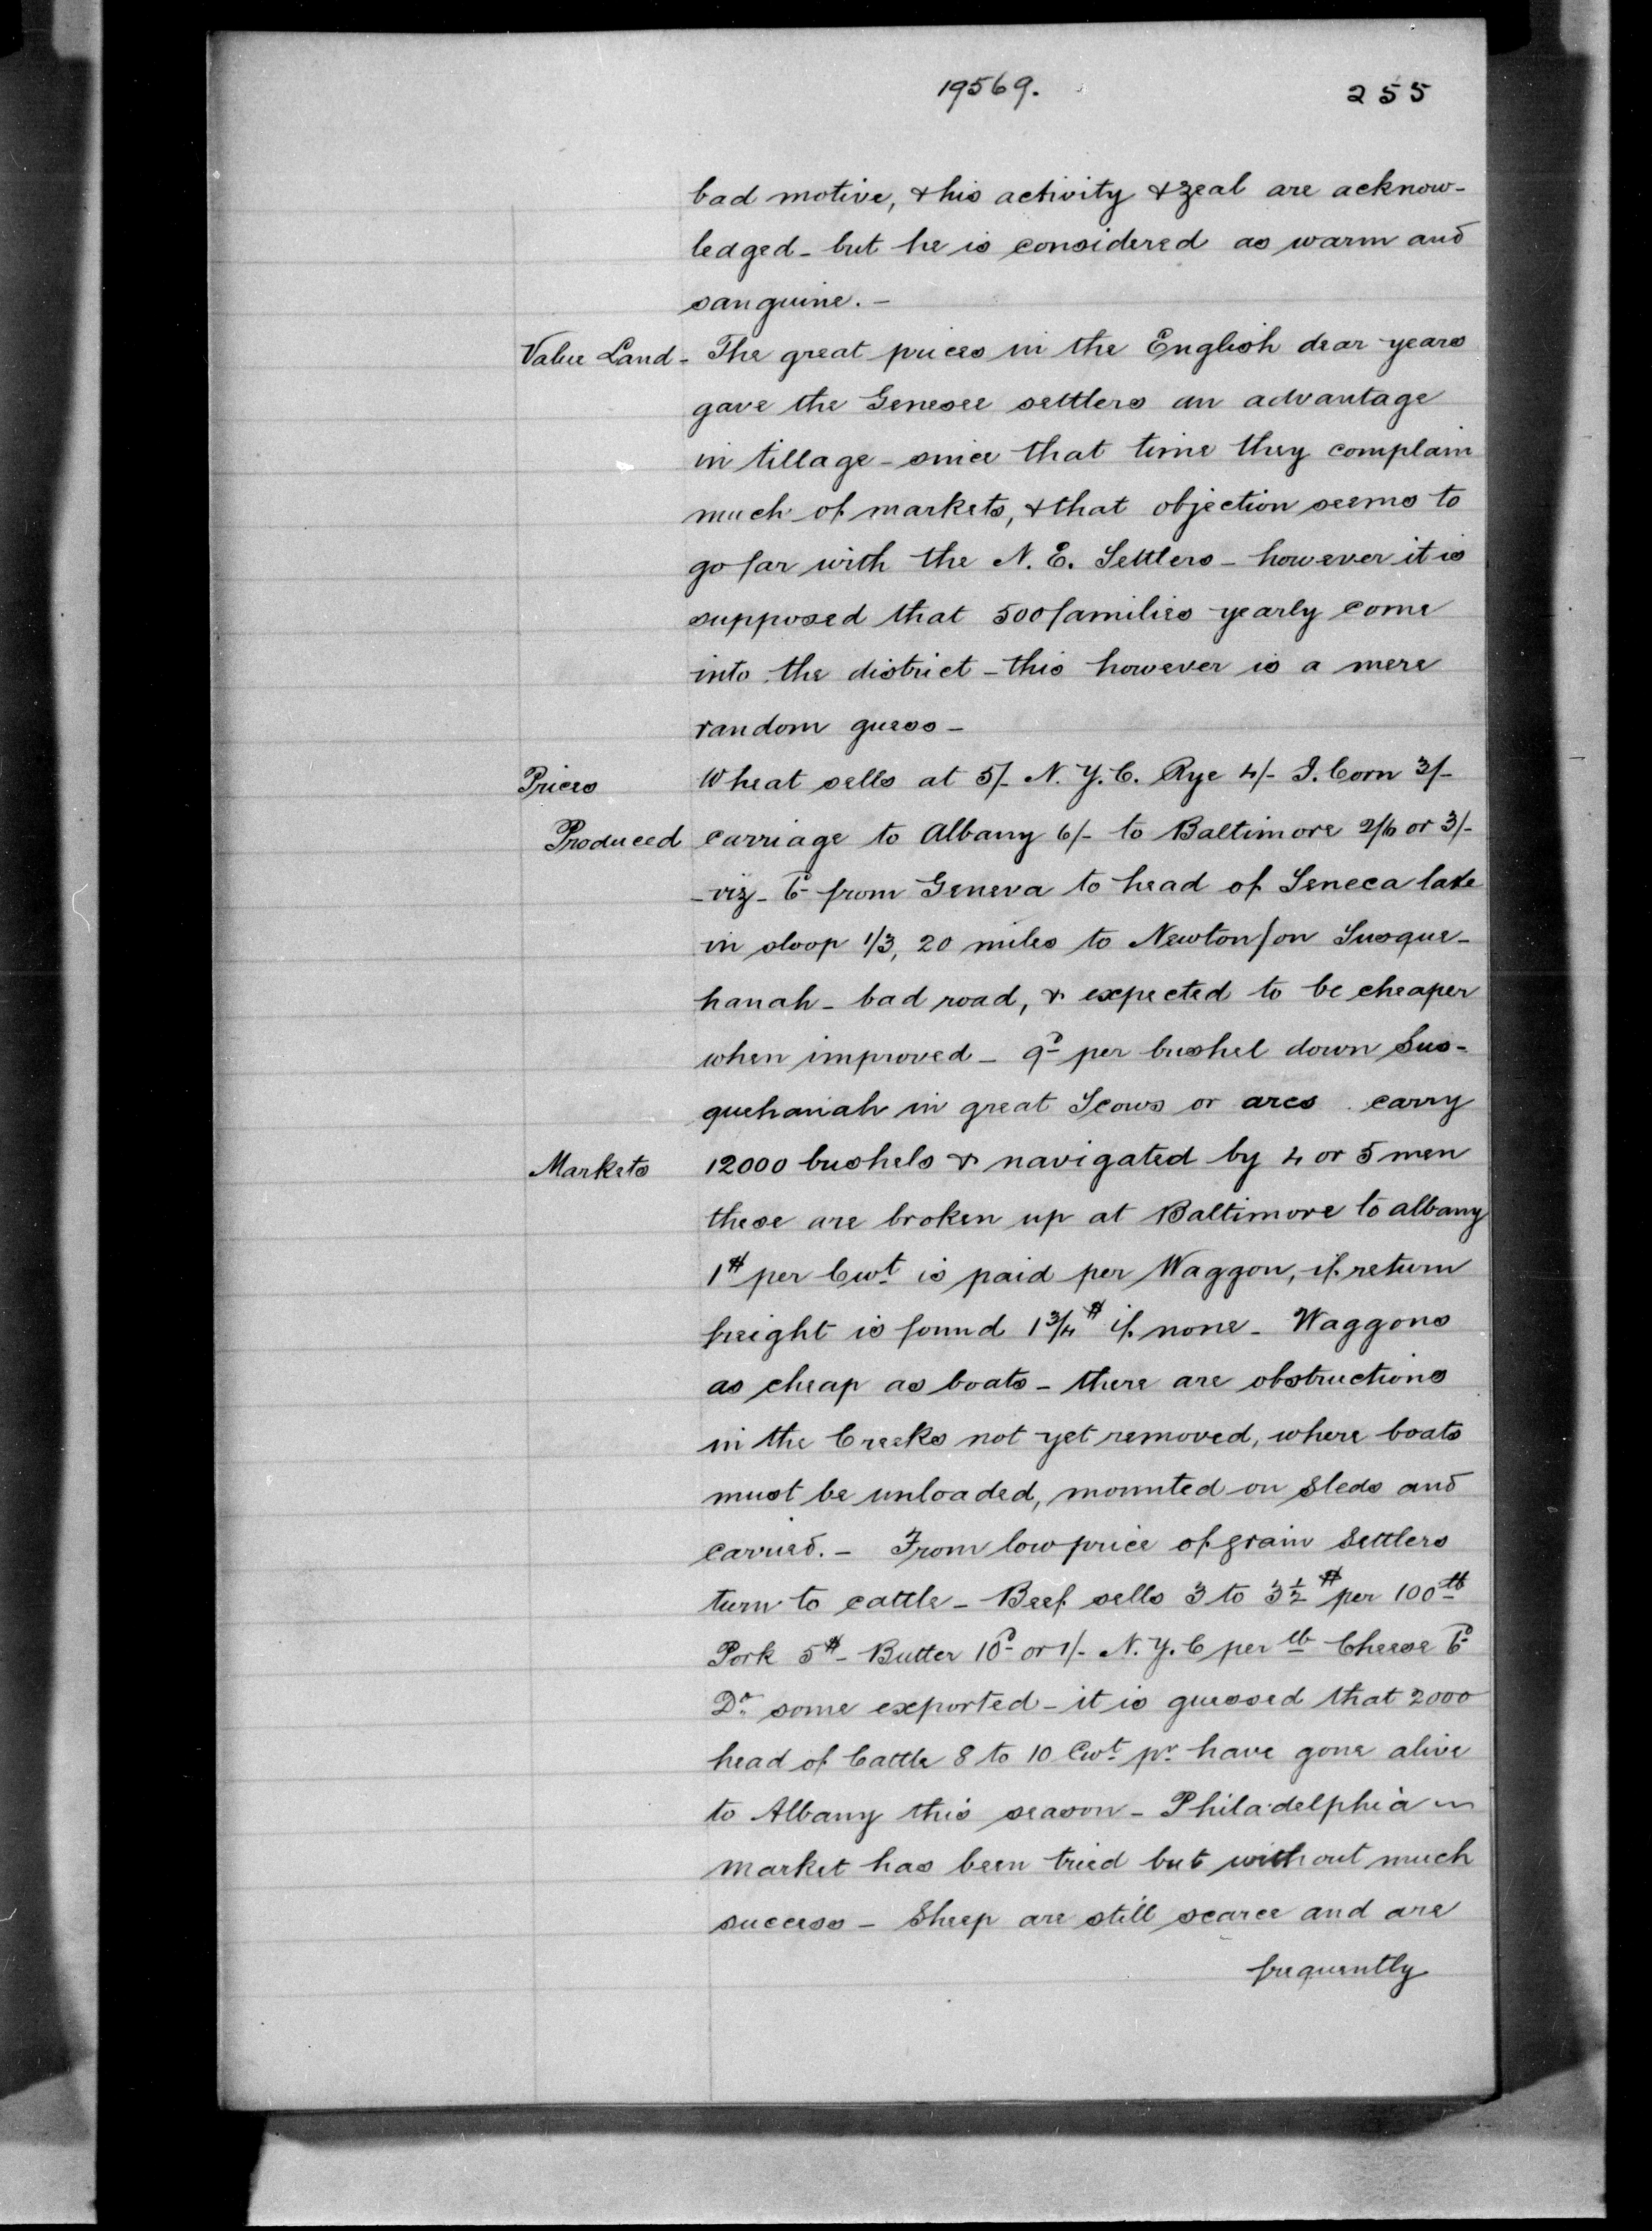 19569. 255
bad motive, & his activity & zeal are acknow-
ledged - but he is considered as warm and
sanguine. -
Value Land - The great prices in the English dear years
gave the Genesee settlers an advantage
in tillage - since that time they complain
much of markets, & that objection seems to
go far with the N. E. Settlers - however it is
supposed that 500 families yearly come
into the district - this however is a mere
random guess -
Prices Wheat sells at 5/- N. Y. C. Rye 4/- I. Corn 3/-
Produced carriage to Albany 6/- to Baltimore 2/6 or 3/-
- viz - 6d from Geneva to head of Seneca lake
in sloop 1/3, 20 miles to Newton/on Susque-
hanah - bad road, & expected to be cheaper
when improved - 9d per bushel down Sus-
quehanah in great Scows or arcs . carry
Markets 12000 bushels & navigated by 4 or 5 men
these are broken up at Baltimore to albany
1$ per Cwt is paid per Waggon, if return
freight is found 1 3/4 $ if none - Waggons
as cheap as boats - there are obstructions
in the Creeks not yet removed, where boats
must be unloaded, mounted on sleds and
carried. - From low price of grain Settlers
turn to cattle - Beef sells 3 to 3 1/2 $ per 100 lb
Pork 5$ - Butter 10d or 1/- N. Y. C per lb Cheese 6d
Do some exported - it is guessed that 2000
head of Cattle 8 to 10 Cwt pr have gone alive
to Albany this season - Philadelphia
market has been tried but without much
success - Sheep are still scarce and are
frequently